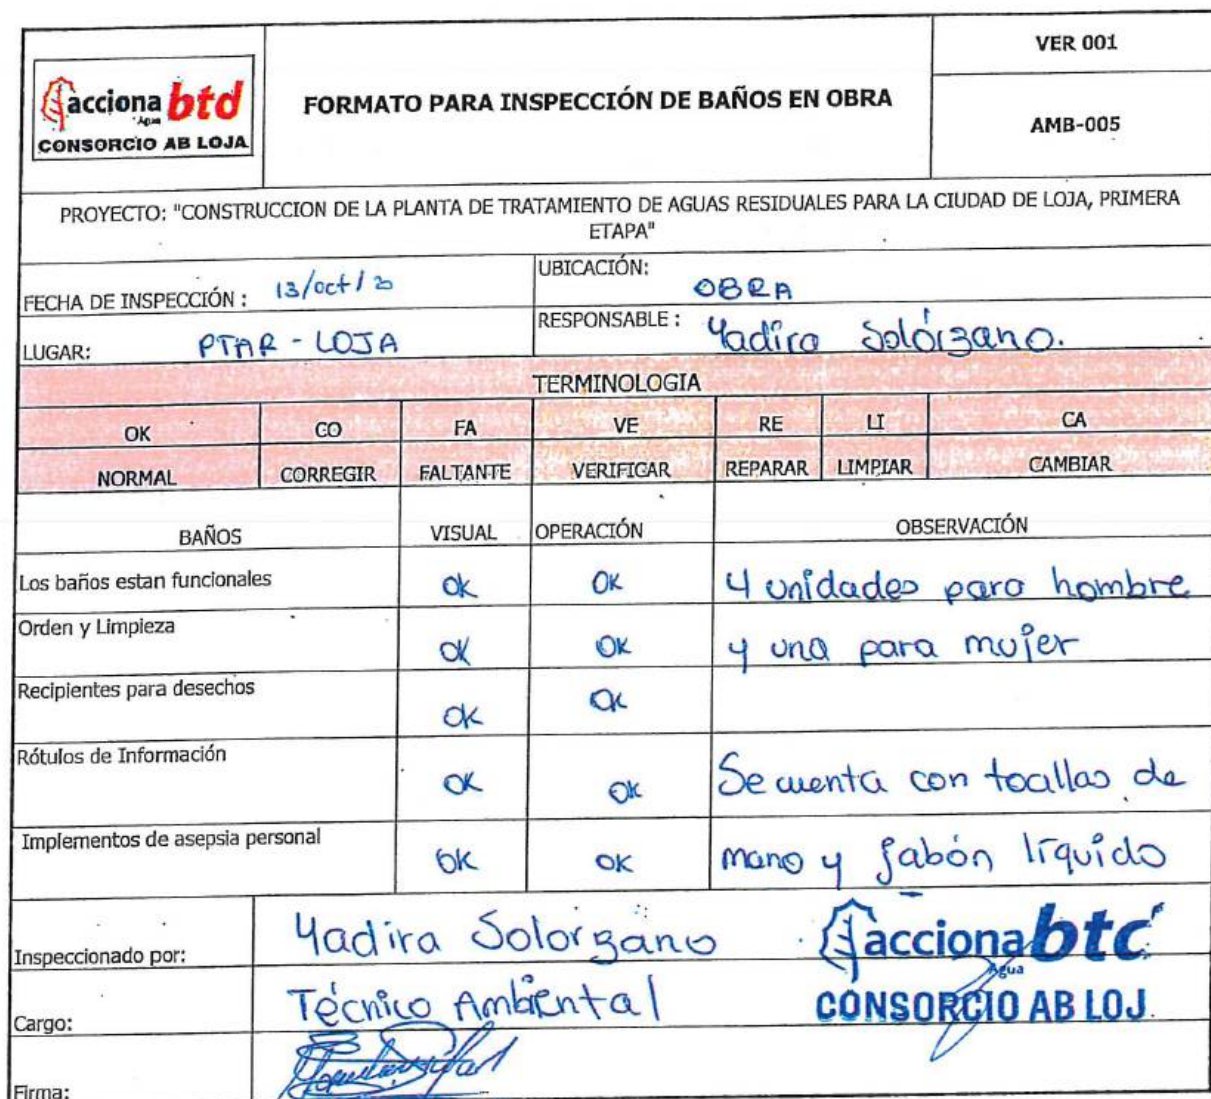 acciona btd
Agua
CONSORCIO AB LOJA
FORMATO PARA INSPECCIÓN DE BAÑOS EN OBRA
VER 001
AMB-005
PROYECTO: "CONSTRUCCION DE LA PLANTA DE TRATAMIENTO DE AGUAS RESIDUALES PARA LA CIUDAD DE LOJA, PRIMERA
ETAPA"
FECHA DE INSPECCIÓN : 13/oct/20
UBICACIÓN: OBRA
LUGAR: PTAR - LOJA
RESPONSABLE : Yadira Solórzano.
TERMINOLOGIA
OK CO FA VE RE LI CA
NORMAL CORREGIR FALTANTE VERIFICAR REPARAR LIMPIAR CAMBIAR
BAÑOS VISUAL OPERACIÓN OBSERVACIÓN
Los baños estan funcionales ok OK 4 unidades para hombre
Orden y Limpieza ok OK y una para mujer
Recipientes para desechos ok Ok
Rótulos de Información OK OK Se cuenta con toallas de
Implementos de asepsia personal OK OK mano y jabón líquido
Inspeccionado por: Yadira Solorzano
Cargo: Técnico Ambiental
Firma:
acciona btc
Agua
CONSORCIO AB LOJ